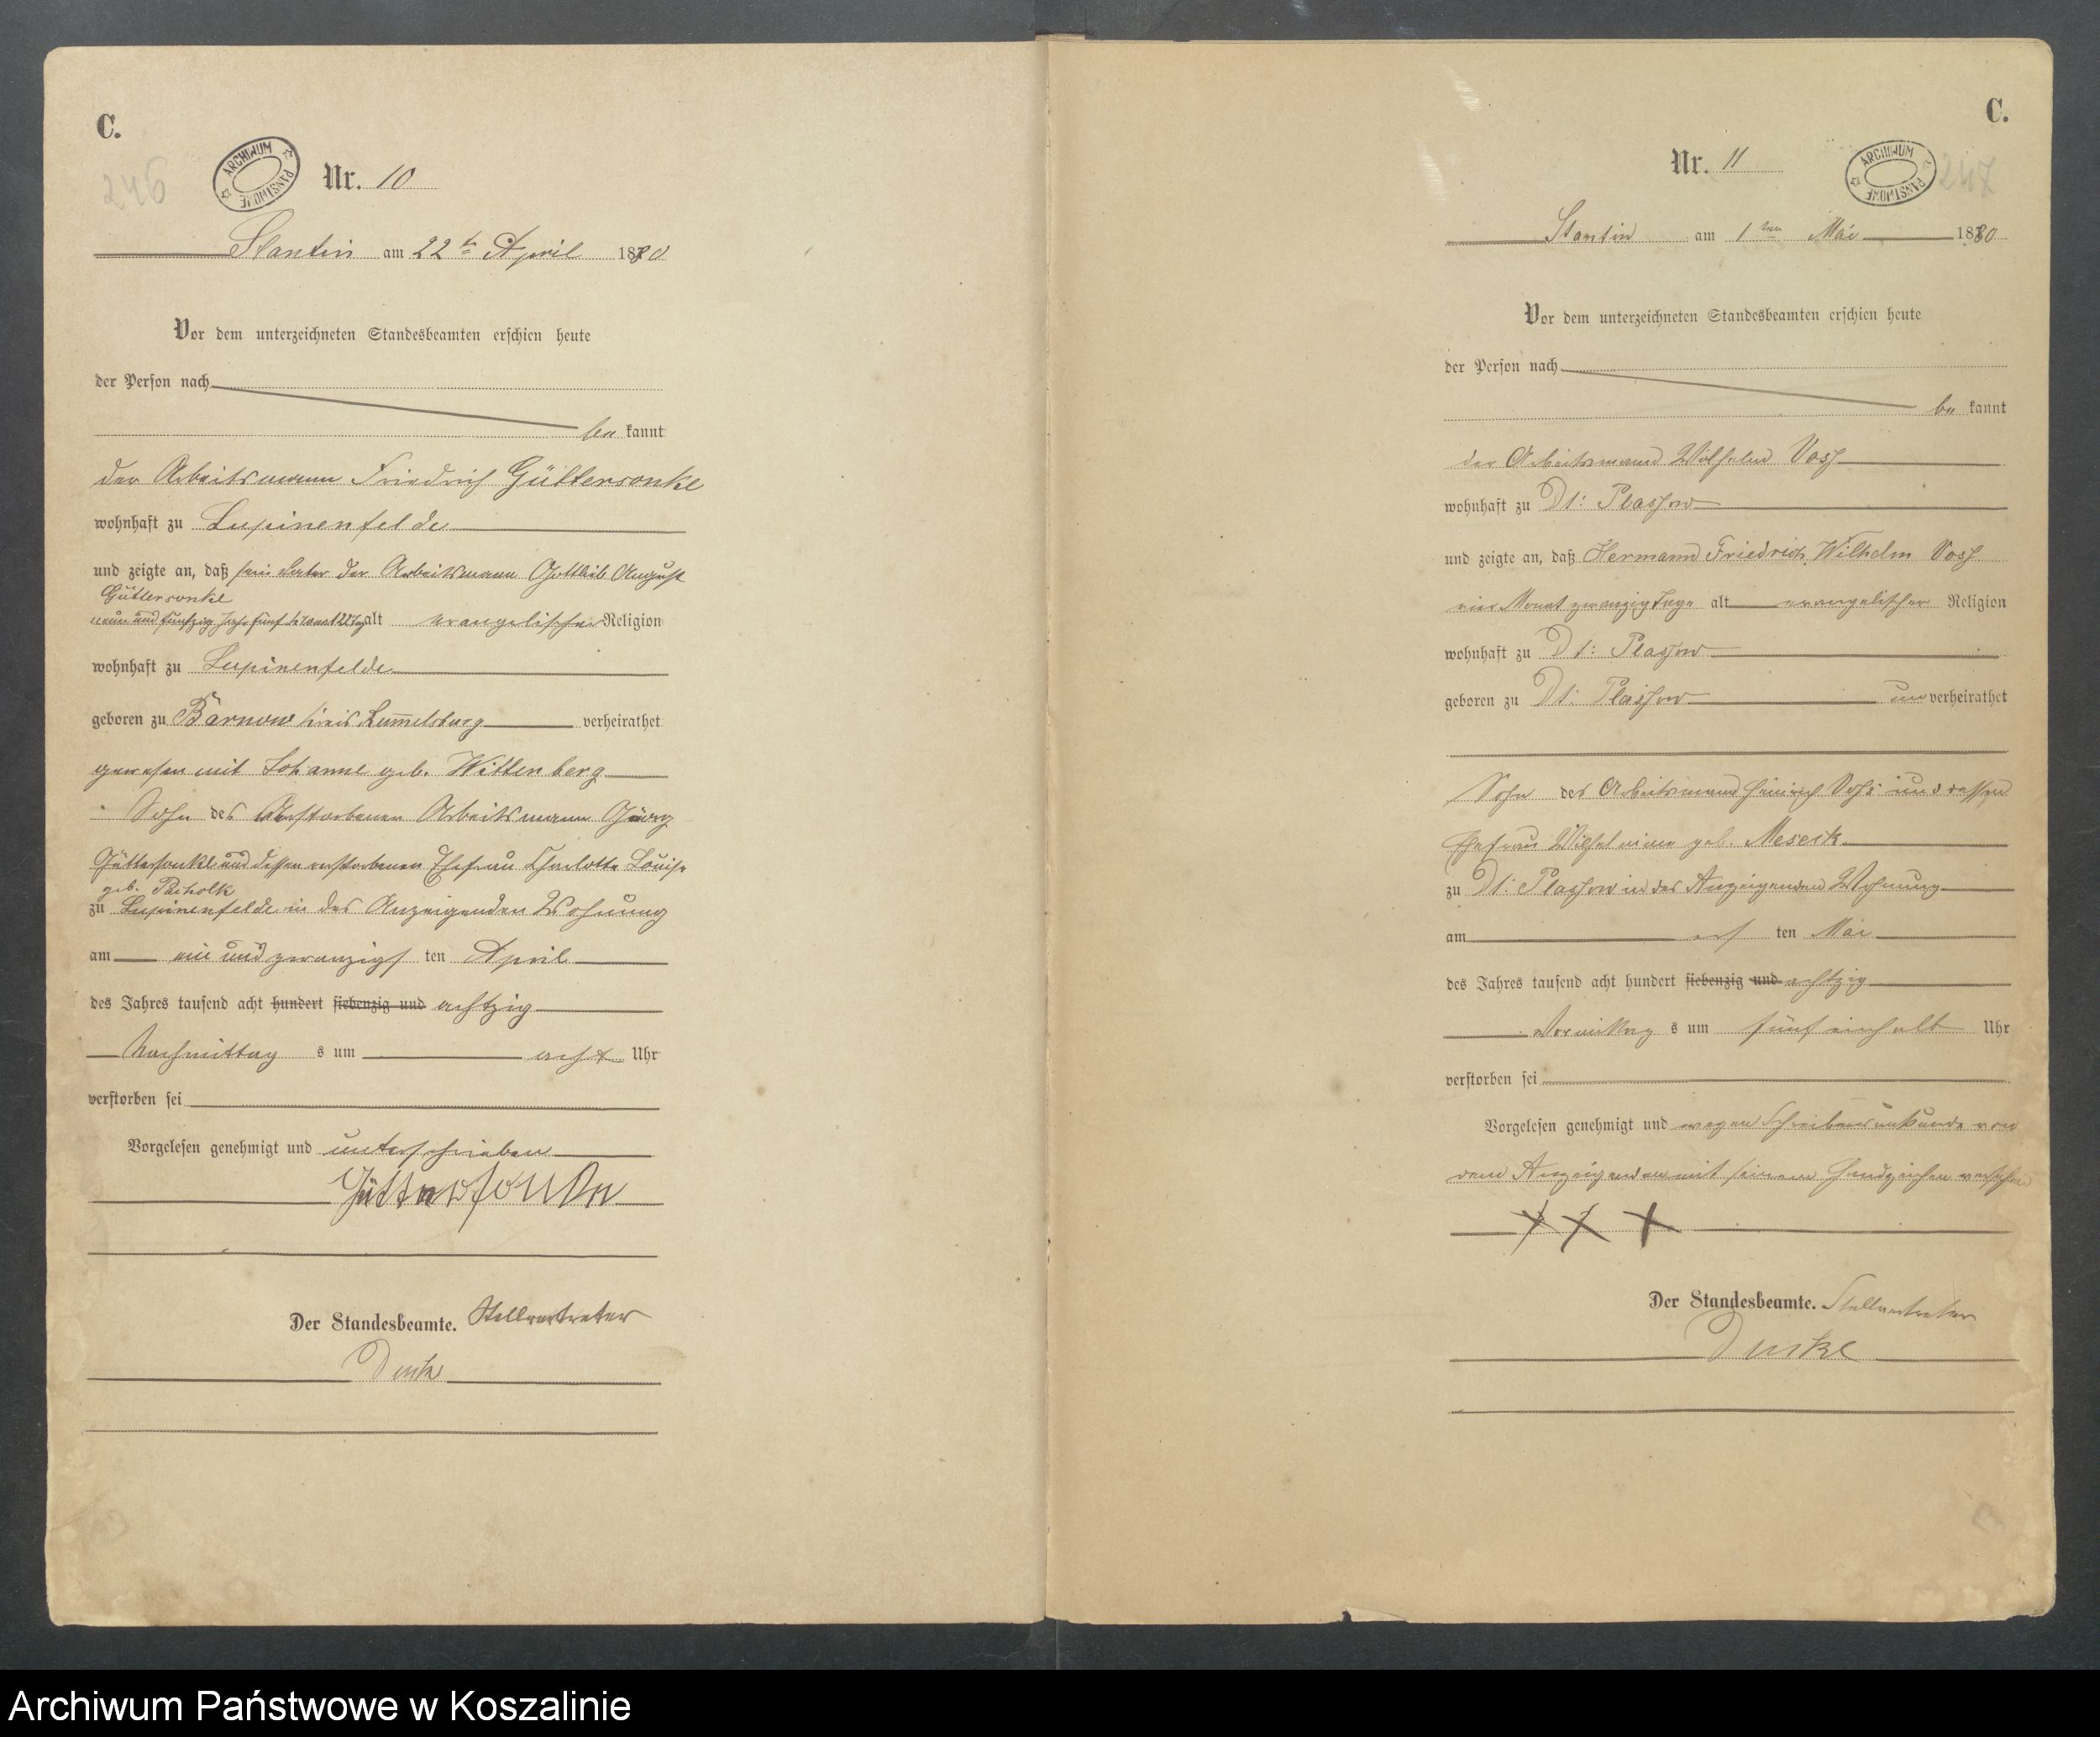 C.
246
ARCHIWUM PAŃSTWOWE
Nr. 10
Stantin am 22ten April 1880
Vor dem unterzeichneten Standesbeamten erschien heute
der Person nach
be kannt
der Arbeitsmann Friedrich Güttersonke
wohnhaft zu Lupinenfelde
und zeigte an, daß sein Vater der Arbeitsmann Gottlieb August
Güttersonke
neun und fünfzig Jahr fünf Monat 22 Tag alt evangelischer Religion
wohnhaft zu Lupinenfelde
geboren zu Barnow Kreis Rummelsburg verheirathet
gewesen mit Johanne geb. Wittenberg
Sohn des verstorbenen Arbeitsmann Georg
Güttersonke und dessen verstorbenen Ehefrau Charlotte Louise
geb. Pacholk
zu Lupinenfelde in des Anzeigenden Wohnung
am ein und zwanzigs ten April
des Jahres tausend acht hundert siebenzig und achtzig
Nachmittag s um acht Uhr
verstorben sei
Vorgelesen genehmigt und unterschrieben
Güttersonke
Der Standesbeamte. Stellvertreter
C.
Nr. 11
ARCHIWUM PAŃSTWOWE
247
Stantin am 1ten Mai 1880
Vor dem unterzeichneten Standesbeamten erschien heute
der Person nach
be kannt
der Arbeitsmann Wilhelm Voss
wohnhaft zu Dt: Plassow
und zeigte an, daß Hermann Friedrich Wilhelm Voss
ein Monat zwanzig Tage alt evangelischer Religion
wohnhaft zu Dt: Plassow
geboren zu Dt: Plassow unverheirathet
Sohn des Arbeitsmann Heinrich Voss und dessen
Ehefrau Wilhelmine geb. Meseck
zu Dt: Plassow in des Anzeigenden Wohnung
am ers ten Mai
des Jahres tausend acht hundert siebenzig und achtzig
Vormittag s um fünf einhalb Uhr
verstorben sei
Vorgelesen genehmigt und wegen Schreibensunkunde von
dem Anzeigenden mit seinem Handzeichen versehen
X X X
Der Standesbeamte. Stellvertreter
Dunke
Archiwum Państwowe w Koszalinie